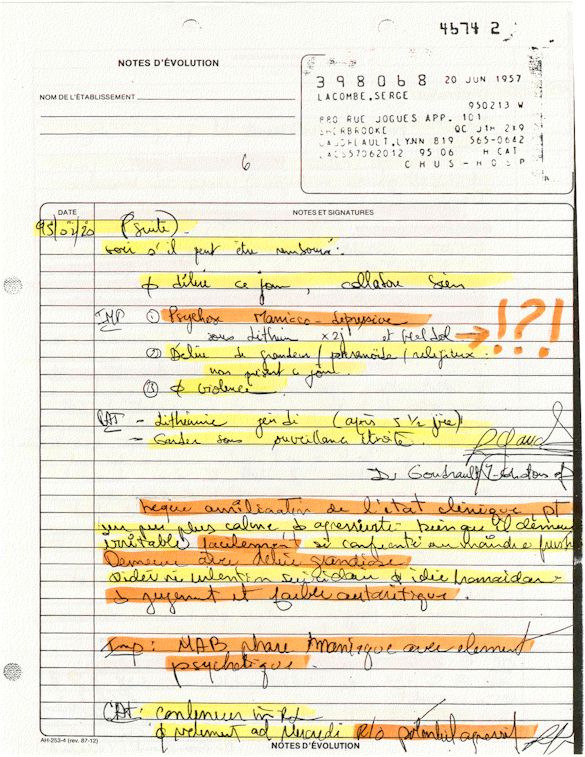 4674 2
NOTES D'ÉVOLUTION
NOM DE L'ÉTABLISSEMENT
398068 20 JUN 1957
LACOMBE,SERGE
950213 W
880 RUE JOGUES APP. 101
SHERBROOKE QC J1H 2X9
LYNN 819 565-0642
LACS57062012 95 06 H CAT
CHUS-HOSP
6
DATE
NOTES ET SIGNATURES
95/02/20 (suite)
voir s'il peut être
ϕ délire ce jour, collabore bien
IMP ① Psychose Maniaco-dépressive
sous lithium x2j et !?!
② Délire de grandeur / paranoïde / religieux
non présent ce jour.
③ ϕ violence
CAT - lithémie jeudi (après 5 1/2 jrs)
- Garder sous surveillance étroite.
Dr Goudrault
amélioration de l'état clinique, pt
un peu plus calme ↓ agressivité bien que il demeure
irritable facilement si confronté au moindre
Demeure avec délire grandiose
idée ni intention suicidaire ϕ idée homicidaire
↓ jugement et faible autocritique.
Imp: MAB phase maniaque avec élément
psychotique.
CAT: continuer
ϕ vêtement ad Mercredi R/O potentiel agressif
AH-253-4 (rev. 87-12)
NOTES D'ÉVOLUTION